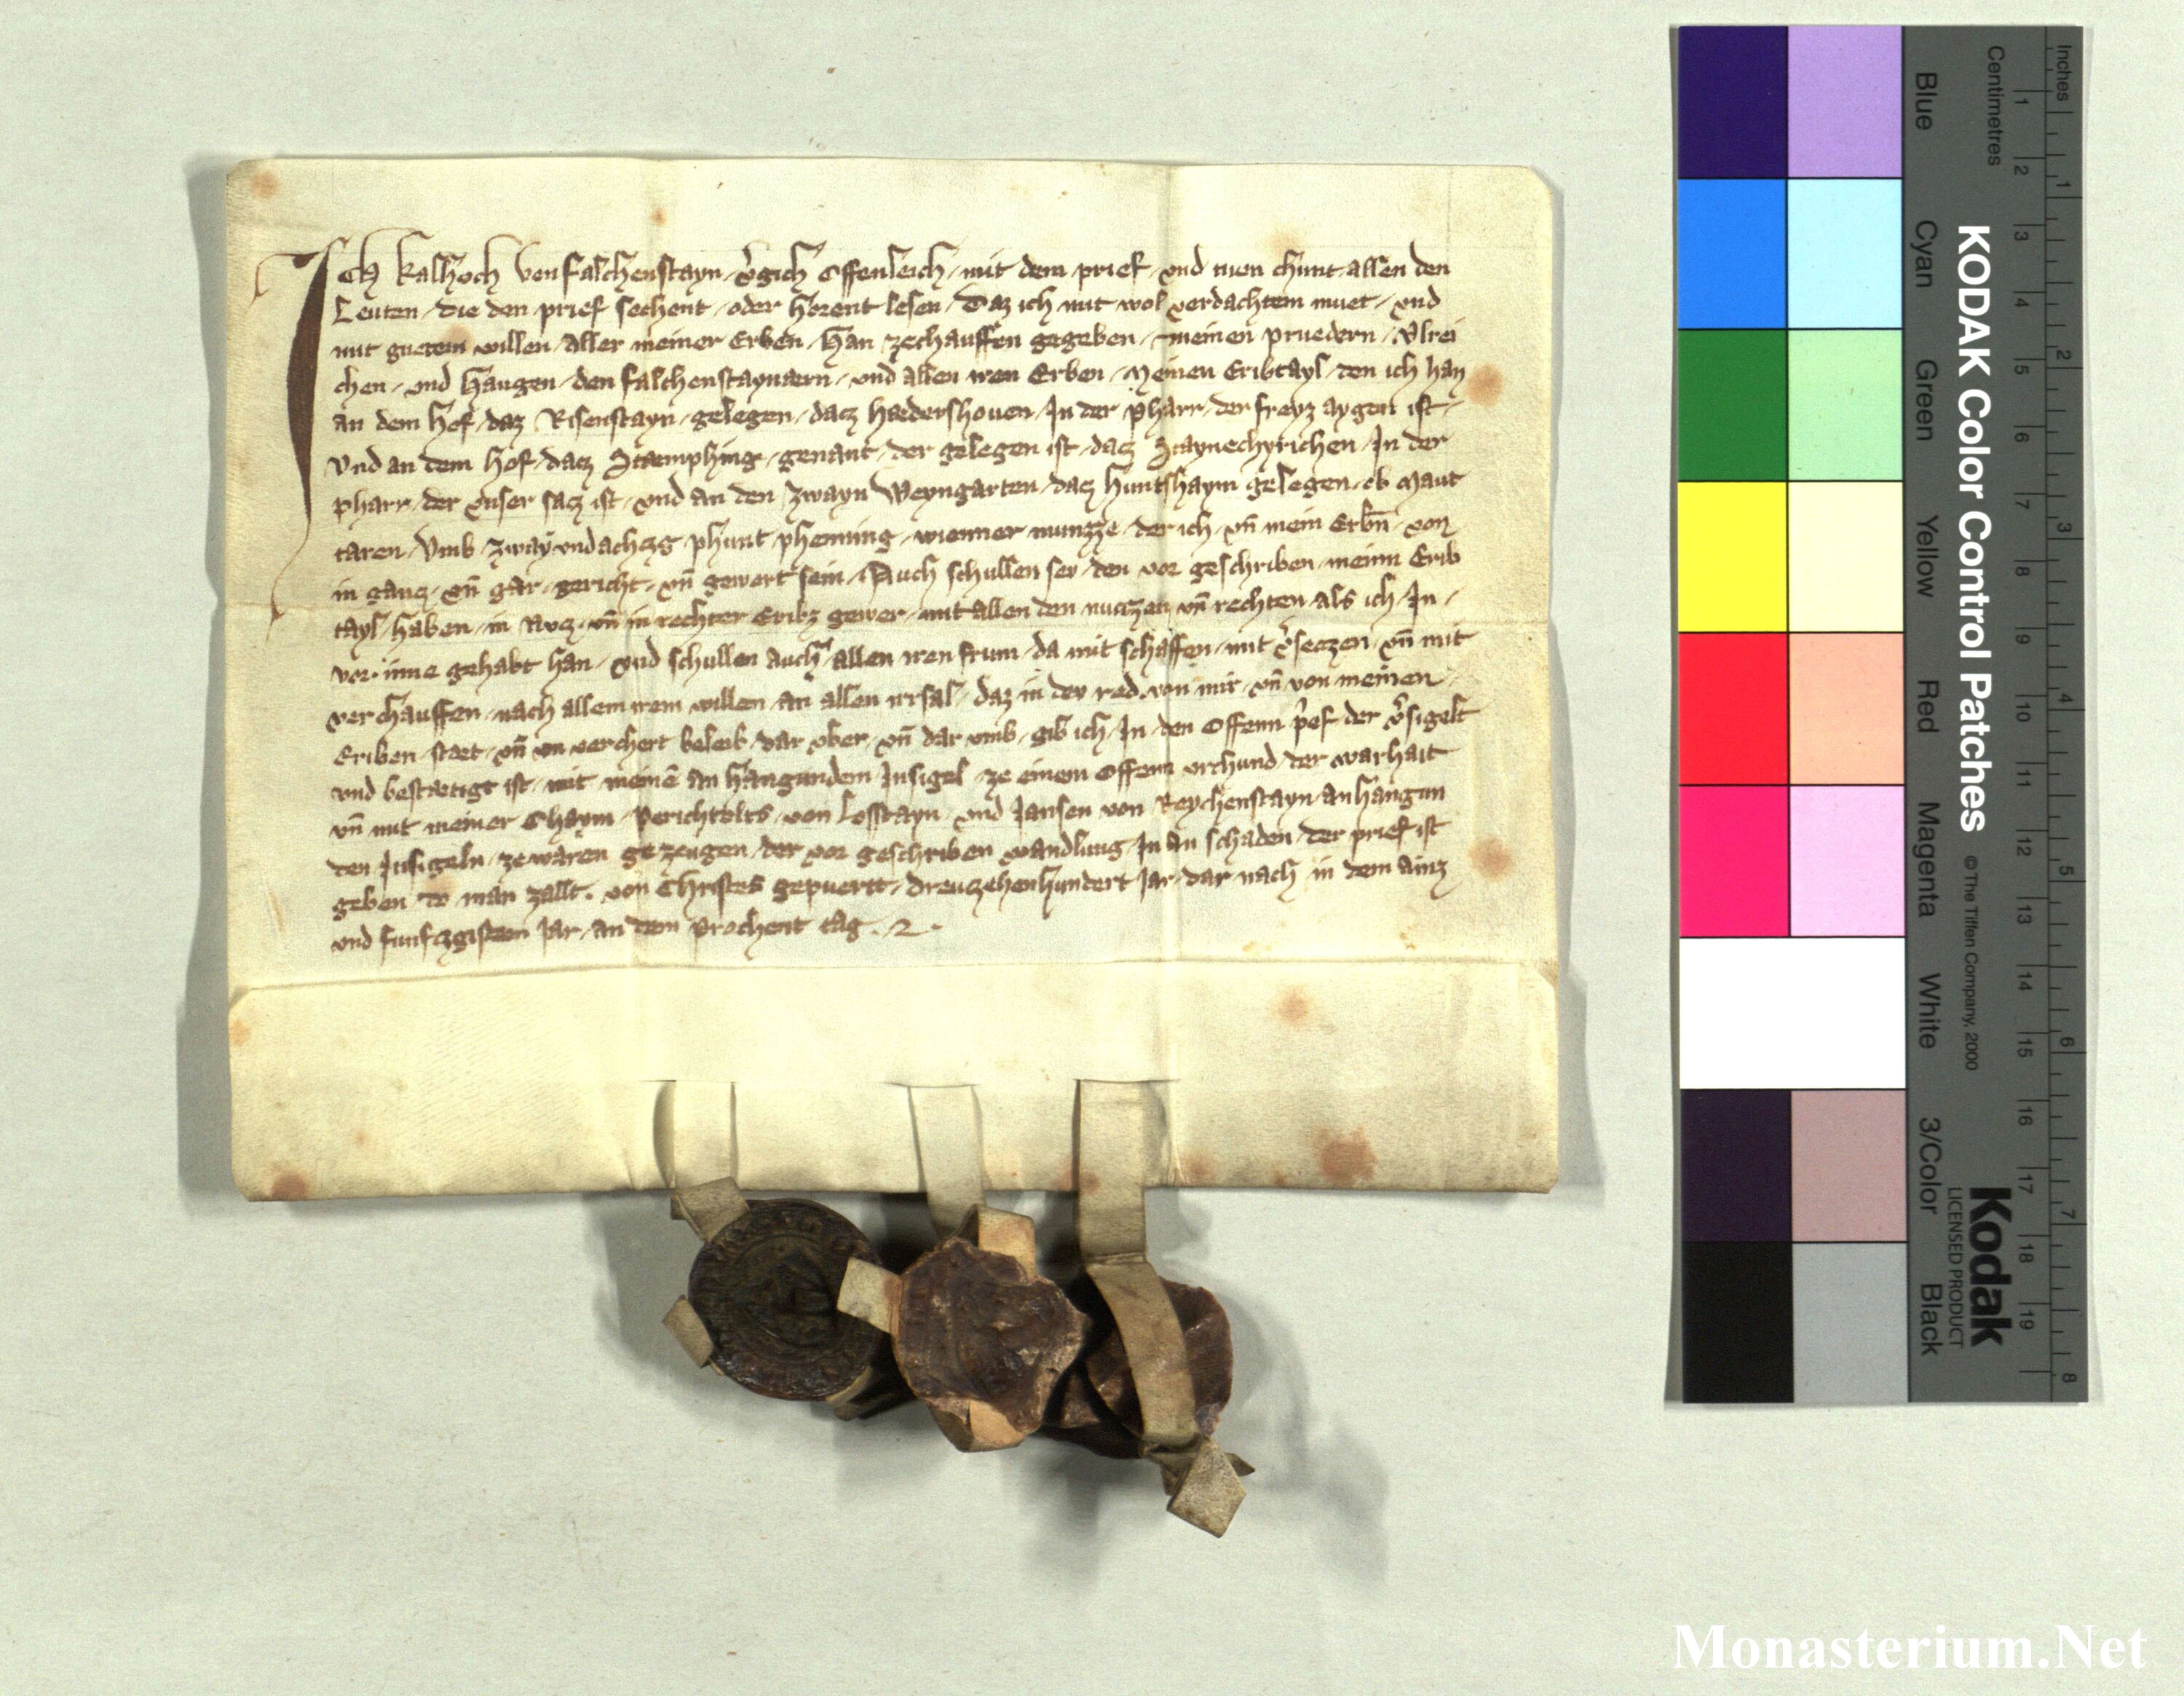 Ich kalhoch von falchenstayn v̄gich Offenleich mit dem prief und tuen chunt allen den
Leuten die den prief sechent oder hörent lesen Daz ich mit wol verdachtem muet und
mit guetem willen aller meiner Erben han zechauffen gegeben meinen pruedern Vlrei
chen und haugen den falchenstaynaern und allen iren Erben Meinen Eribtayl den ich han
an dem hof daz Risenstayn gelegen dacz haedershouen In der pharr der freyz aygen ist
Und an dem hof dacz Staemphing genant der gelegen ist dacz Staynechyrichen In der
pharr der vnser sacz ist und an den zwayn Weyngarten dacz huntshaym gelegen ob Maut
taren Umb zway und achczg phunt phenning wienner munzze der ich vn̄ mein Erbn̄ von
in gancz vn̄ gar gericht vn̄ gewert sein Auch schullen sev den vor geschriben meinn Erib
tayl haben in Nucz vn̄ in rechter Eribz gewer mit allen den nuczzen vn̄ rechten als ich In
vor inne gehabt han Und schullen auch allen iren frum da mit schaffen mit v̄seczen vn̄ mit
verchauffen nach allem irem willen an allen irrsal daz in dev red von mir vn̄ von meinen
Eriben staet vn̄ vn verchert beleib dar vber vn̄ dar vmb gib ich In den Offenn p̄ef der v̄sigelt
und bestaetigt ist mit meinē an hangundem Insigel ze einem Offenn vrchund der warhait
vn̄ mit meiner Ohaym Perichtolts von Losstayn und Jansen von Reychenstayn anhangun
den Insigeln ze waren gezeugen der vor geschriben wandlung In an schaden der prief ist
geben do man zallt von Christes gepuertt dreuczehenhundert Jar dar nach in dem ainz
und funfczgistem Jar an dem Prechent tag
Inches
Centimetres
1 2 3 4 5 6 7 8
1 2 3 4 5 6 7 8 9 10 11 12 13 14 15 16 17 18 19
KODAK Color Control Patches
© The Tiffen Company, 2000
Kodak
LICENSED PRODUCT
Blue
Cyan
Green
Yellow
Red
Magenta
White
3/Color
Black
Monasterium.Net